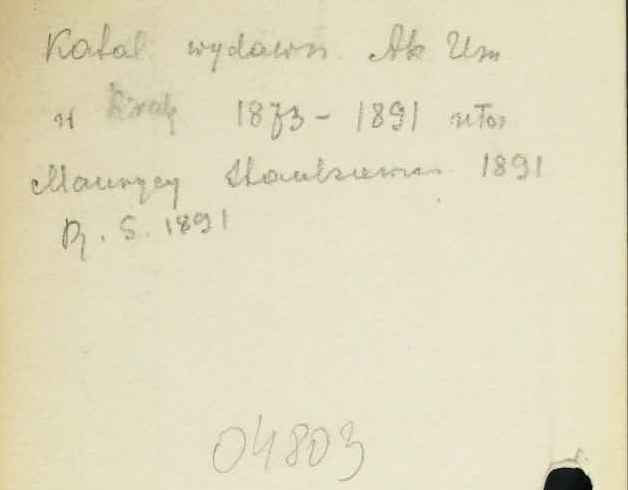 Katal wydawn Ak Um
w Krak 1873 - 1891 ułoż
Maurycy Stankiewicz 1891
R. S. 1891
04803